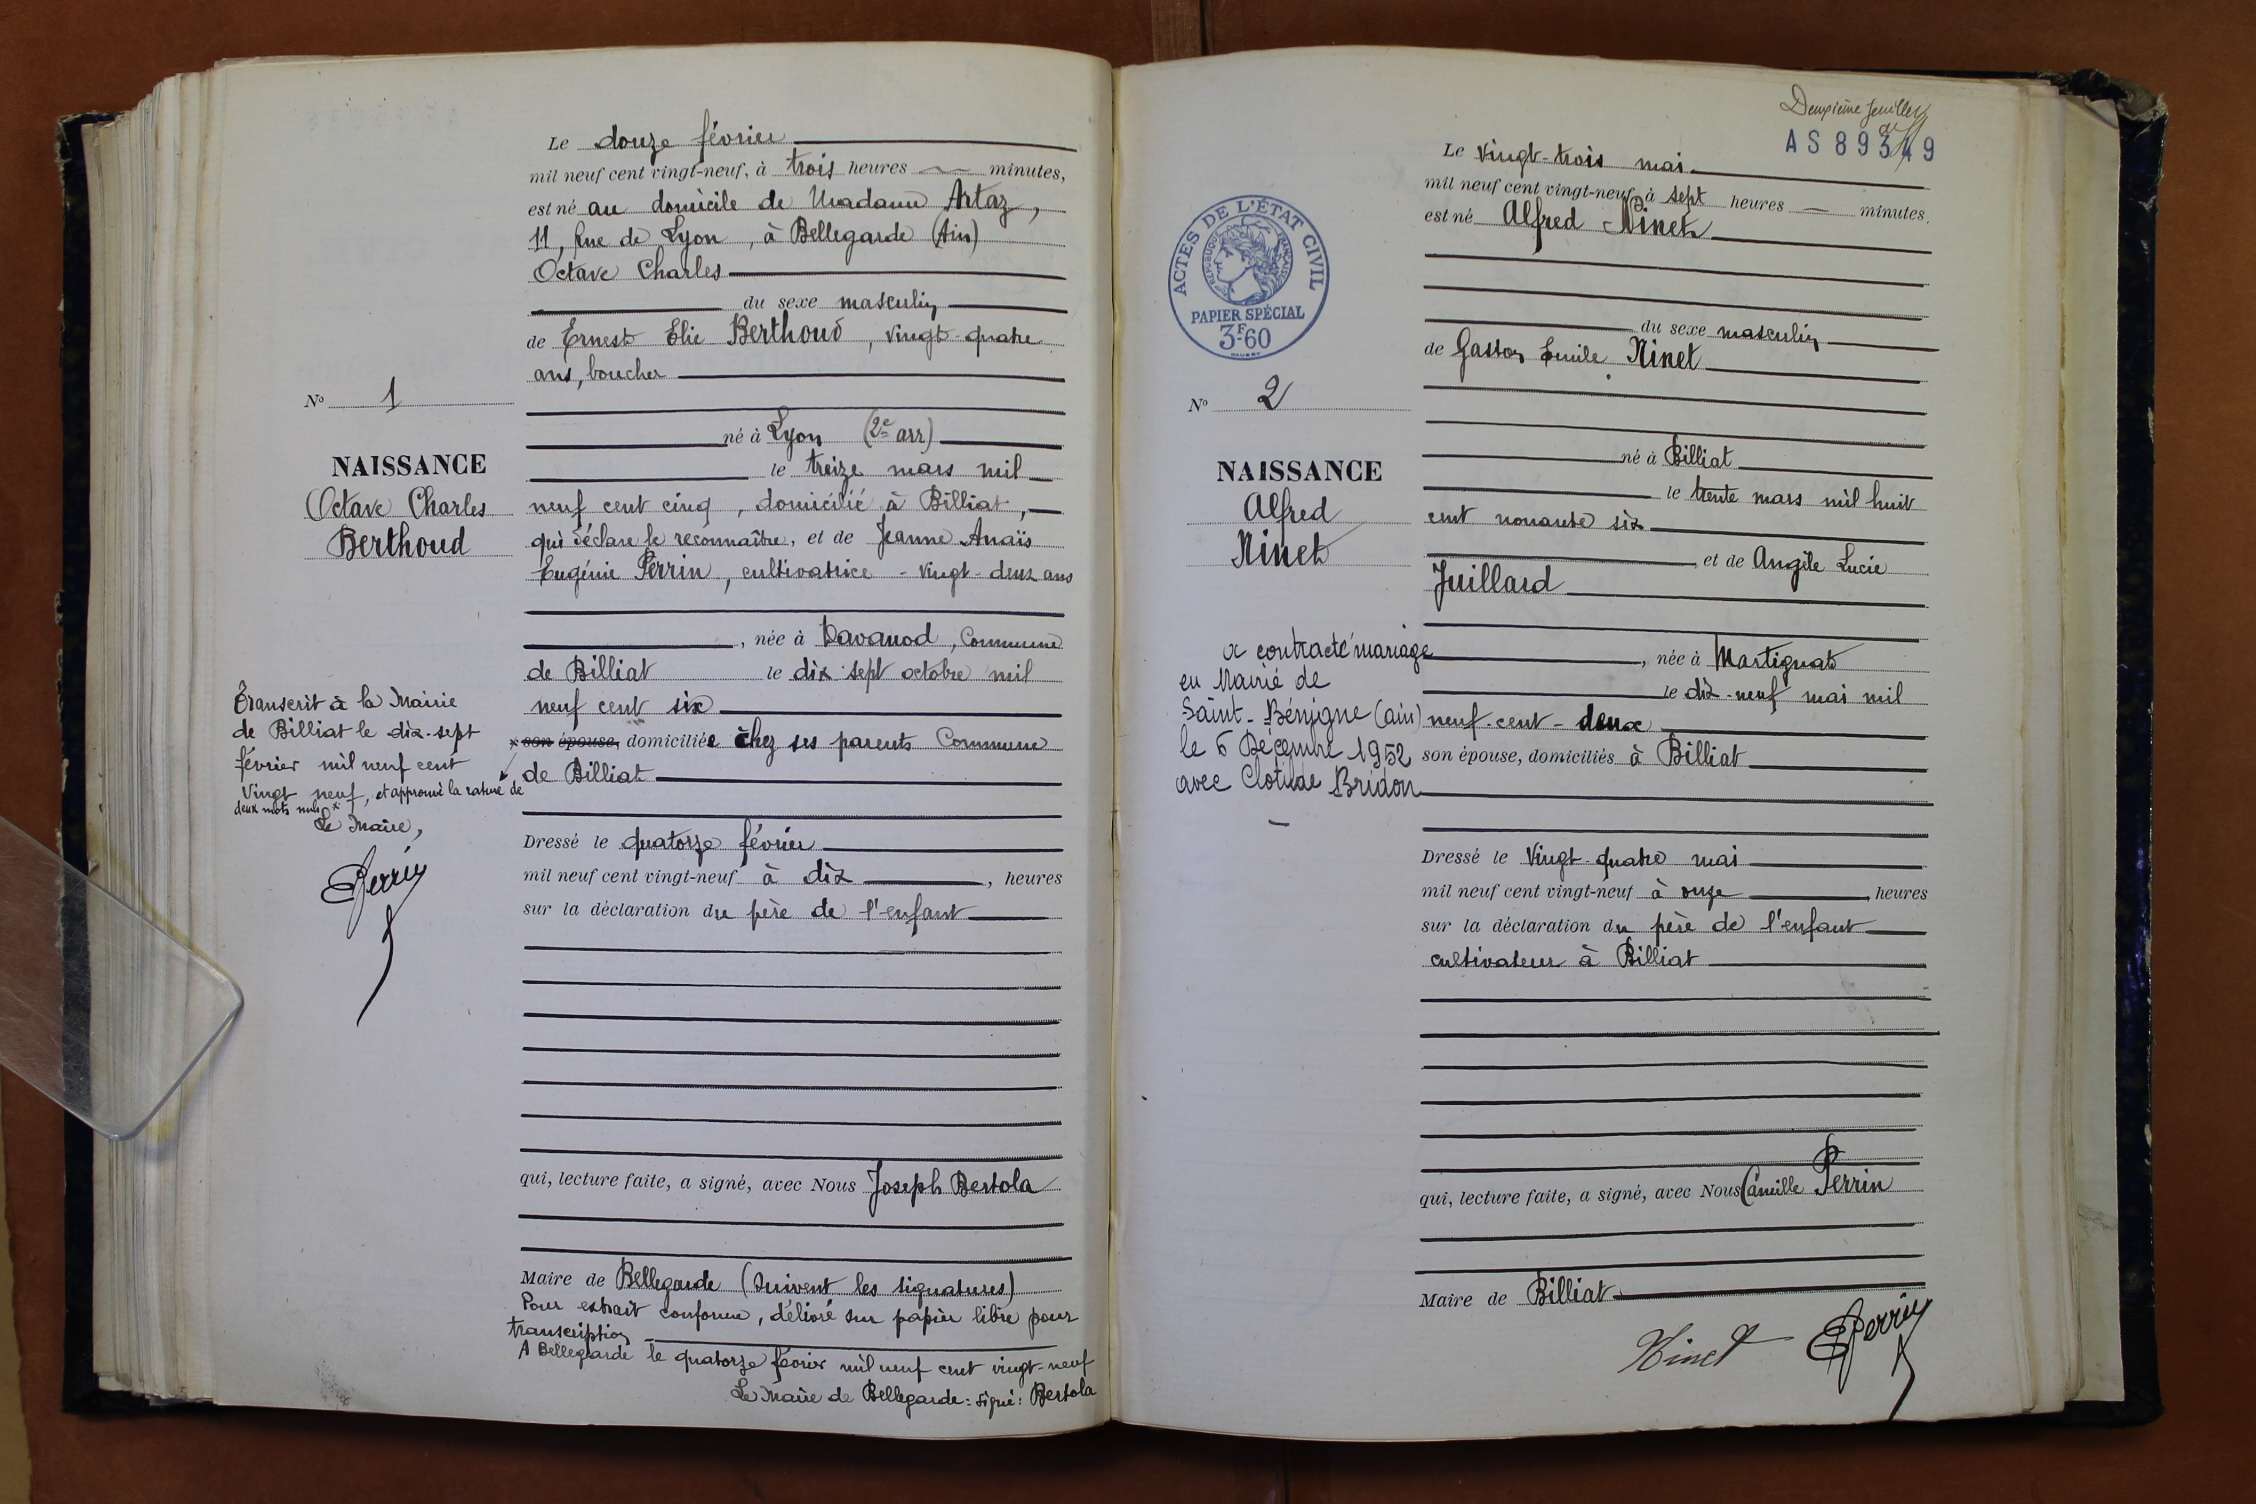 Le douze février
mil neuf cent vingt-neuf, à trois heures minutes,
est né au domicile de Madame Artaz,
11, Rue de Lyon, à Bellegarde (Ain)
Octave Charles
du sexe masculin
de Ernest Elie Berthoud, vingt-quatre
ans, boucher
né à Lyon (2e arr)
le treize mars mil
neuf cent cinq, domicilié à Billiat,
qui déclare le reconnaître, et de Jeanne Anais
Eugénie Perrin, cultivatrice - vingt-deux ans
, née à Davanod, Commune
de Billiat le dix-sept octobre mil
neuf cent six
x son épouse, domiciliée chez ses parents Commune
de Billiat
Dressé le quatorze février
mil neuf cent vingt-neuf à dix, heures
sur la déclaration du père de l'enfant
qui, lecture faite, a signé, avec Nous Joseph Bertola
Maire de Bellegarde (suivent les signatures)
Pour extrait conforme, délivré sur papier libre pour
transcription
A Bellegarde le quatorze février mil neuf cent vingt-neuf
Le Maire de Bellegarde: signé: Bertola
No 1
NAISSANCE
Octave Charles
Berthoud
Transcrit à la Mairie
de Billiat le dix-sept
février mil neuf cent
vingt neuf, et approuvé la rature de
deux mots nuls x
Le Maire,
Perrin
Deuxième feuillet
AS 89349
Le vingt-trois mai
mil neuf cent vingt-neuf, à sept heures minutes.
est né Alfred Ninet
du sexe masculin
de Gaston Emile Ninet
né à Billiat
le trente mars mil huit
cent nonante six
et de Angèle Lucie
Juillard
, née à Martignat
le dix-neuf mai mil
neuf-cent-deux
son épouse, domiciliés à Billiat
Dressé le vingt-quatre mai
mil neuf cent vingt-neuf à onze, heures
sur la déclaration du père de l'enfant
cultivateur à Billiat
qui, lecture faite, a signé, avec Nous Camille Perrin
Maire de Billiat
Ninet Perrin
ACTES DE L'ÉTAT CIVIL
RÉPUBLIQUE FRANÇAISE
PAPIER SPÉCIAL
3F60
No 2
NAISSANCE
Alfred
Ninet
a contracté mariage
en Mairie de
Saint-Bénigne (ain)
le 6 Décembre 1952
avec Clotilde Bridon